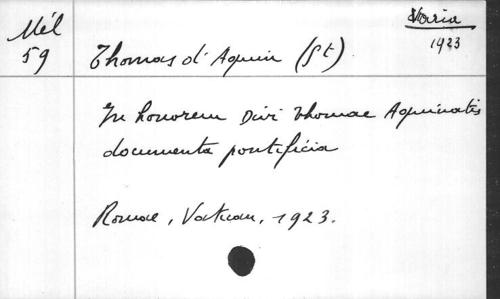 Mél
59
Varia
1923
Thomas d'Aquin (St)
In honorem Divi Thomae Aquinatis
documenta pontificia
Romae, Vatican, 1923.